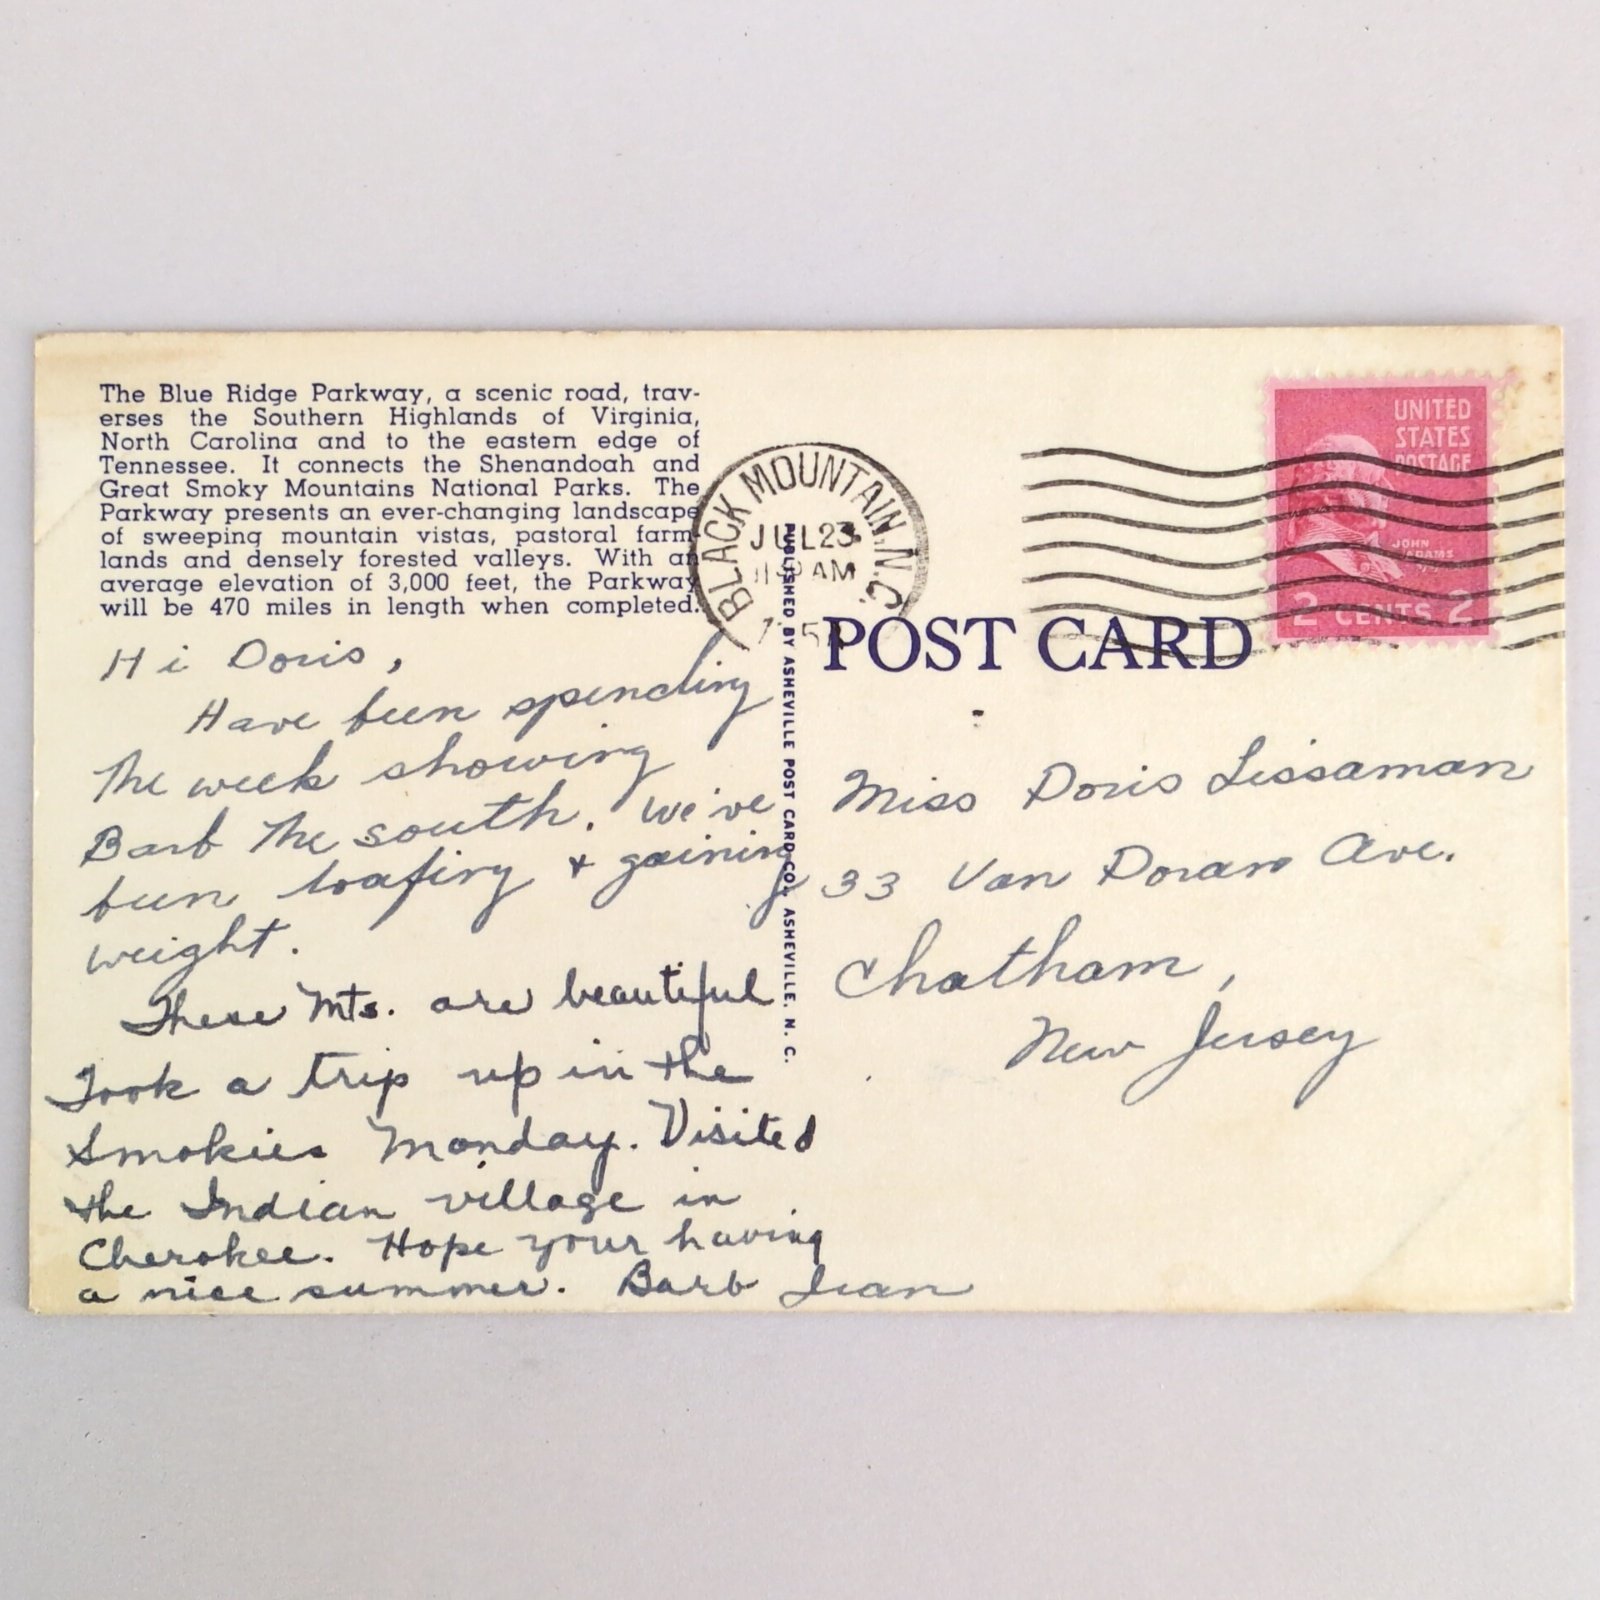 The Blue Ridge Parkway, a scenic road, trav-
erses the Southern Highlands of Virginia,
North Carolina and to the eastern edge of
Tennessee. It connects the Shenandoah and
Great Smoky Mountains National Parks. The
Parkway presents an ever-changing landscape
of sweeping mountain vistas, pastoral farm-
lands and densely forested valleys. With an
average elevation of 3,000 feet, the Parkway
will be 470 miles in length when completed.
Hi Doris,
Have been spending
the week showing
Barb the south. We've
been loafing + gaining
weight.
These Mts. are beautiful
Took a trip up in the
Smokies Monday. Visited
the Indian village in
Cherokee. Hope your having
a nice summer. Barb Jean
PUBLISHED BY ASHEVILLE POST CARD CO., ASHEVILLE, N. C.
BLACK MOUNTAIN, N.C.
JUL 23
AM
UNITED
STATES
POSTAGE
JOHN
ADAMS
2 CENTS 2
POST CARD
Miss Doris Lissaman
33 Van Doran Ave.
Chatham,
New Jersey